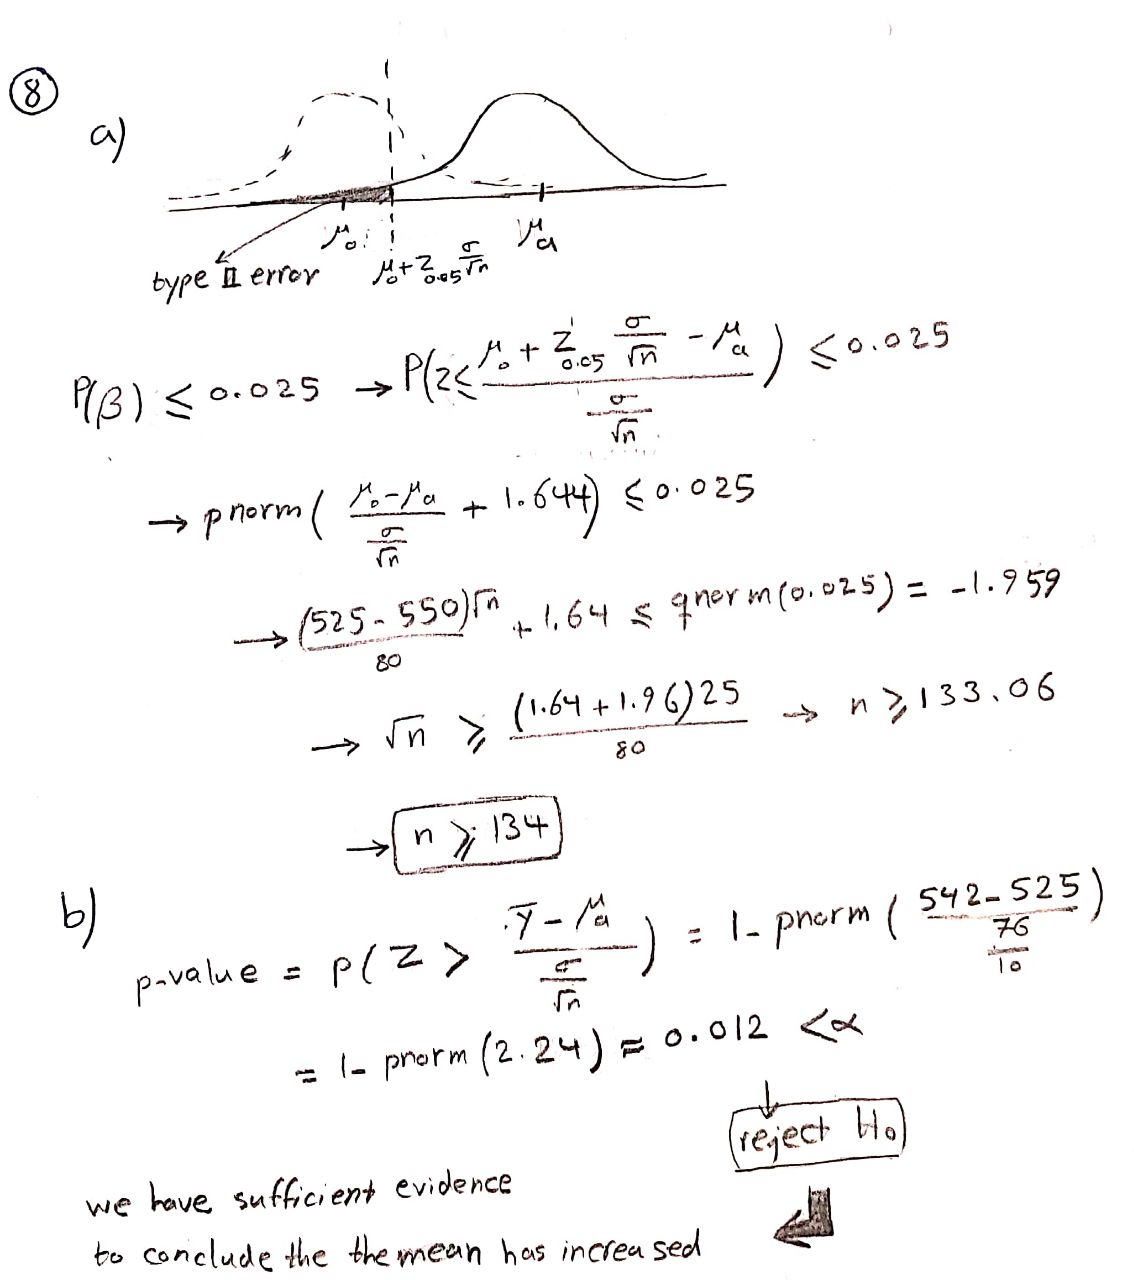 ⑧
a)
μ₀ μₐ
type II error μ₀+Z₀.₀₅ σ/√n
P(β) ≤ 0.025 → P(z ≤ (μ₀ + Z₀.₀₅ σ/√n - μₐ)/(σ/√n)) ≤ 0.025
→ pnorm( (μ₀-μₐ)/(σ/√n) + 1.644) ≤ 0.025
→ (525-550)√n/80 + 1.64 ≤ qnorm(0.025) = -1.959
→ √n ≥ (1.64+1.96)25/80 → n ≥ 133.06
→ n ≥ 134
b)
p-value = p(Z > (ȳ-μₐ)/(σ/√n)) = 1- pnorm( (542-525)/(76/10) )
= 1- pnorm(2.24) ≈ 0.012 <α
↓
reject H₀
we have sufficient evidence
to conclude the the mean has increased